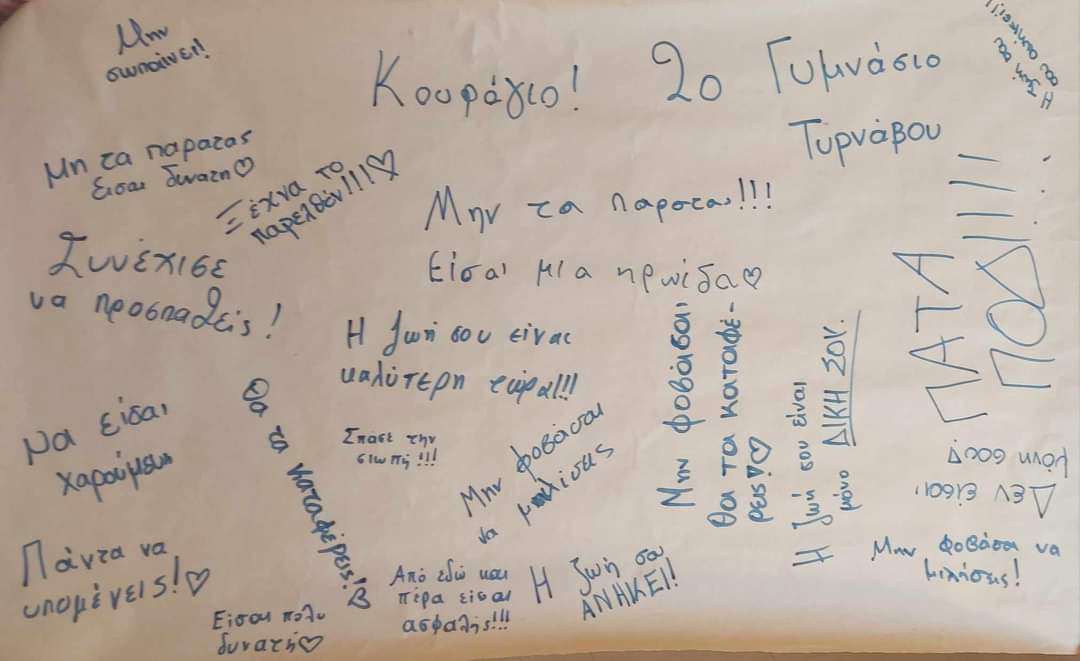 Μην
σωπαίνεις!
Κουράγιο!
2ο Γυμνάσιο
Τυρνάβου
Η ζωή σου
σου ανήκει!!
Μη τα παρατας
εισαι δυνατη♡
Ξέχνα το
παρελθόν!!!♡
Μην τα παρατας!!!
Είσαι μια ηρωίδα♡
Συνέχισε
να προσπαθείς!
Η ζωή σου είναι
καλύτερη τώρα!!!
ΠΑΤΑ
ΠΟΔΙ!!!
Να είσαι
χαρούμενη
Θα τα καταφέρεις!♡
Σπασε την
σιωπή!!!
Μην φοβάσαι
να μιλίσεις
Μην φοβάσαι.
Θα τα καταφέ-
ρεις!♡
Η ζωή σου είναι
μόνο ΔΙΚΗ ΣΟΥ.
Δεν είσαι
μόνη σου!
Πάντα να
υπομένεις!♡
Είσαι πολυ
δυνατή♡
Από εδώ και
πέρα είσαι
ασφαλής!!!
Η ζωή σου
ΑΝΗΚΕΙ!
Μην φοβάσαι να
μιλήσεις!